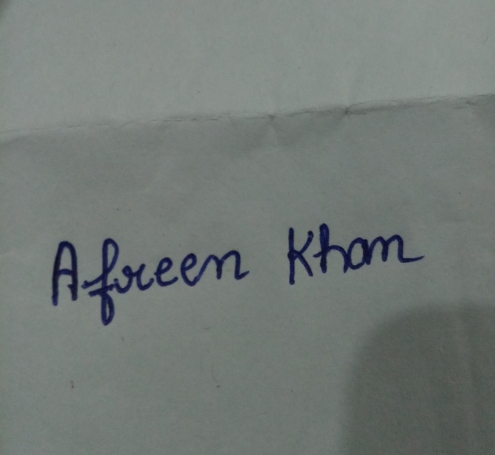 Afreen Khan